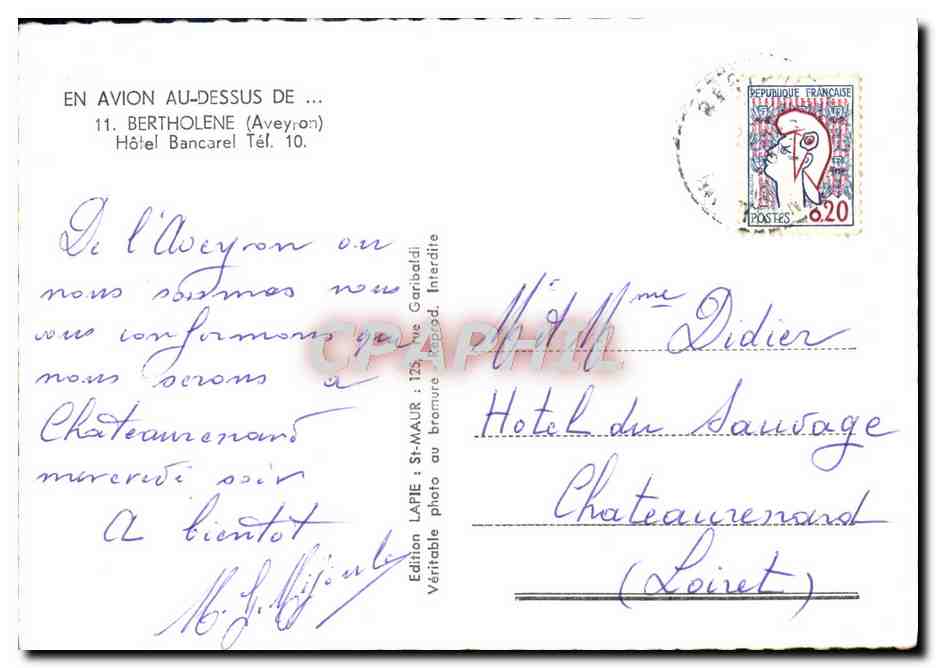 EN AVION AU-DESSUS DE ...
11. BERTHOLENE (Aveyron)
Hôtel Bancarel Tél. 10.
De l'Aveyron ou
nous sommes nous
vous confirmons que
nous serons à
Chateaurenard
mercredi soir
A bientot
Edition LAPIE : St-MAUR : 125, rue Garibaldi
Véritable photo au bromure Reprod. Interdite
CPAPHIL
REPUBLIQUE FRANÇAISE
POSTES 0.20
M et Mme Didier
Hotel du Sauvage
Chateaurenard
(Loiret)